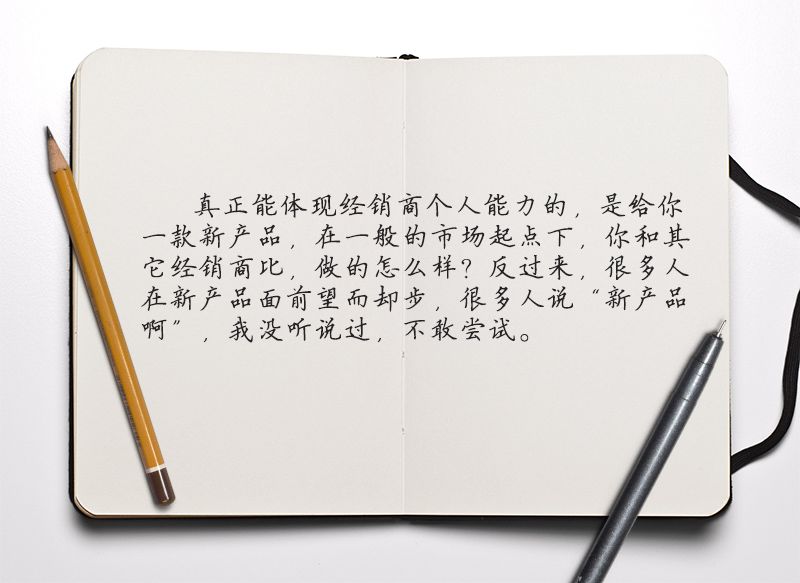 真正能体现经销商个人能力的，是给你
一款新产品，在一般的市场起点下，你和其
它经销商比，做的怎么样？反过来，很多人
在新产品面前望而却步，很多人说“新产品
啊”，我没听说过，不敢尝试。